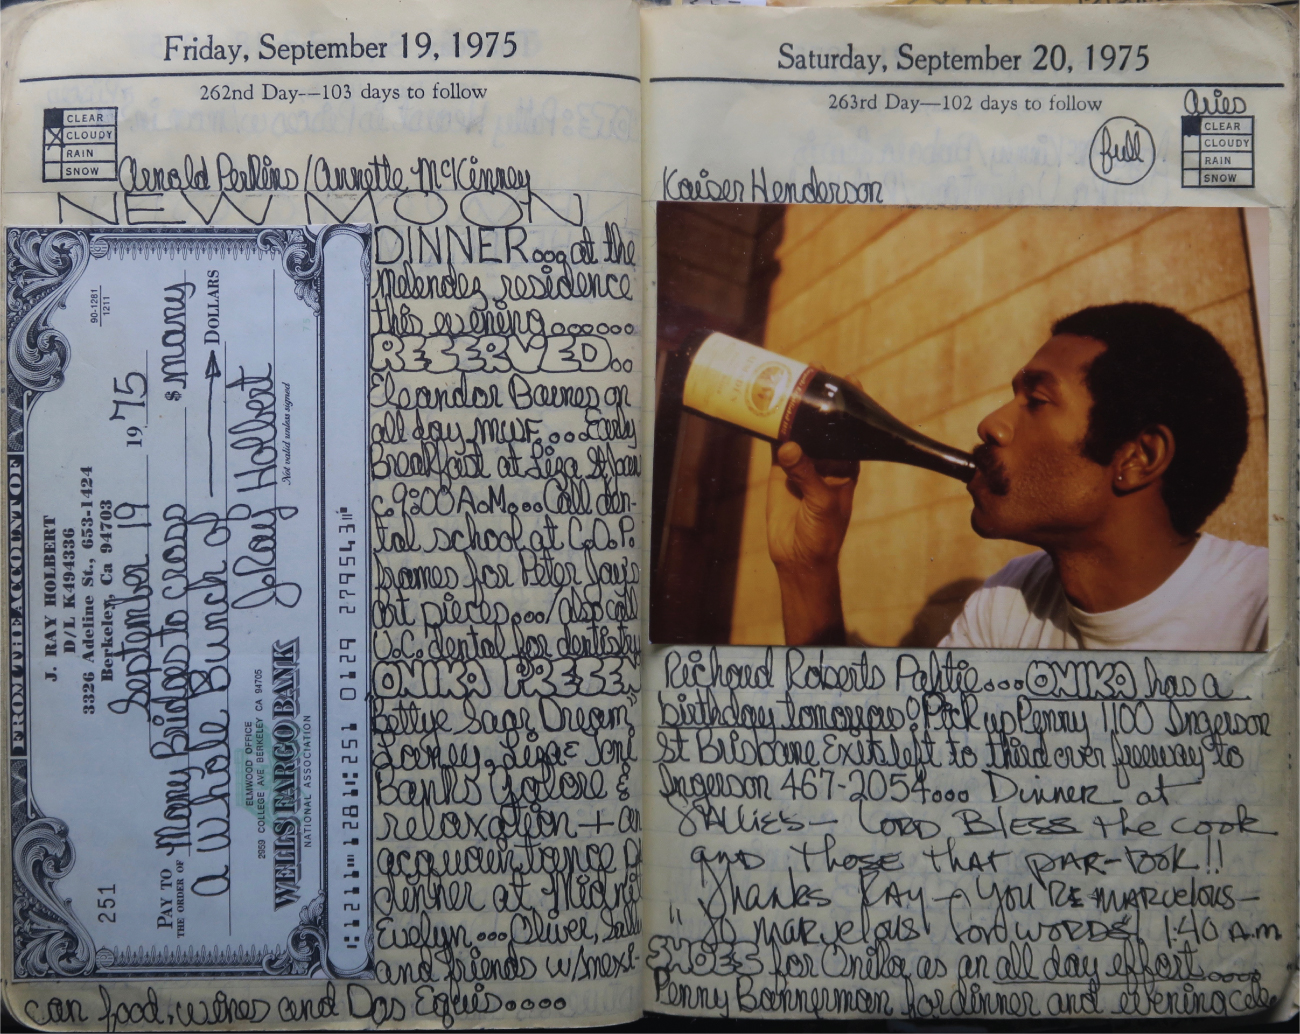 Friday, September 19, 1975
262nd Day—103 days to follow
CLEAR
CLOUDY
RAIN
SNOW
Arnold Perkins/Annette McKinney
NEW MOON
FROM THE ACCOUNT OF
J. RAY HOLBERT
D/L K494336
3326 Adeline St., 653-1424
Berkeley, Ca 94703
251
90-1281
1211
September 19 1975
PAY TO THE ORDER OF Many Bridges to cross $ many
a Whole Bunch of DOLLARS
J Ray Holbert
Not valid unless signed
ELMWOOD OFFICE
2959 COLLEGE AVE. BERKELEY CA 94705
WELLS FARGO BANK
NATIONAL ASSOCIATION
⑆1211⑈1281⑆251 0129 279543⑈
DINNER...at the
Melendez residence
this evening......
RESERVED..
Eleandor Barnes on
all day MWF...Early
Breakfast at Liza
c.9:00 A.M...Call den-
tal school at C.O.P.
frames for Peter
pieces.../also call
U.C. Dental for dentistry
ONIKA PRESE
Bettye Saar Dream
Looney, Liza & Toni
Banks Galore &
relaxation + an
acquaintance
dinner at Midni
Evelyn...Oliver,
and friends w/mexi-
can food, wines and Dos Equis....
Saturday, September 20, 1975
263rd Day—102 days to follow
full
Aries
CLEAR
CLOUDY
RAIN
SNOW
Kaiser Henderson
Richard Roberts Pahtie...ONIKA has a
birthday tomorrow! Pick up Penny 1100 Ingerson
St Brisbane Exit left to third over freeway to
Ingerson 467-2054... Dinner at
SALLIES— LORD BLESS the cook
AND those that PAR-TOOK!!
Thanks RAY — YOU'RE MARVELOUS—
"So marvelous for words" 1:40 A.M
SHOES for Onika as an all day effort....
Penny Bannerman for dinner and evening